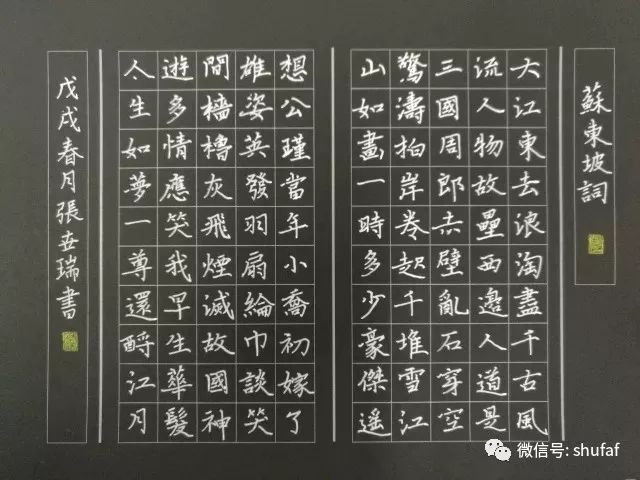 蘇東坡詞
大江東去浪淘盡千古風
流人物故壘西邊人道是
三國周郎赤壁亂石穿空
驚濤拍岸卷起千堆雪江
山如畫一時多少豪傑遥
想公瑾當年小喬初嫁了
雄姿英發羽扇綸巾談笑
間檣櫓灰飛煙滅故國神
遊多情應笑我早生華髮
人生如夢一尊還酹江月
戊戌春月張世瑞書
微信号: shufaf